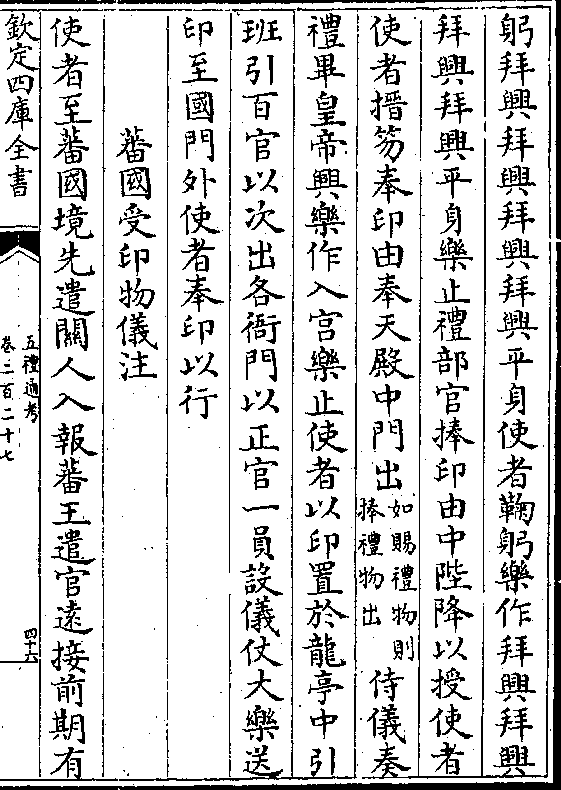 躬拜興拜興拜興拜興平身使者鞠躬樂作拜興拜興
拜興拜興平身樂止禮部官捧印由中陛降以授使者
使者搢笏奉印由奉天殿中門出如賜禮物則捧禮物出侍儀奏
禮畢皇帝興樂作入宮樂止使者以印置於龍亭中引
班引百官以次出各衙門以正官一員設儀仗大樂送
印至國門外使者奉印以行
蕃國受印物儀注
使者至蕃國境先遣關人入報蕃王遣官遠接前期有
欽定四庫全書
五禮通考
卷二百二十七
四十六